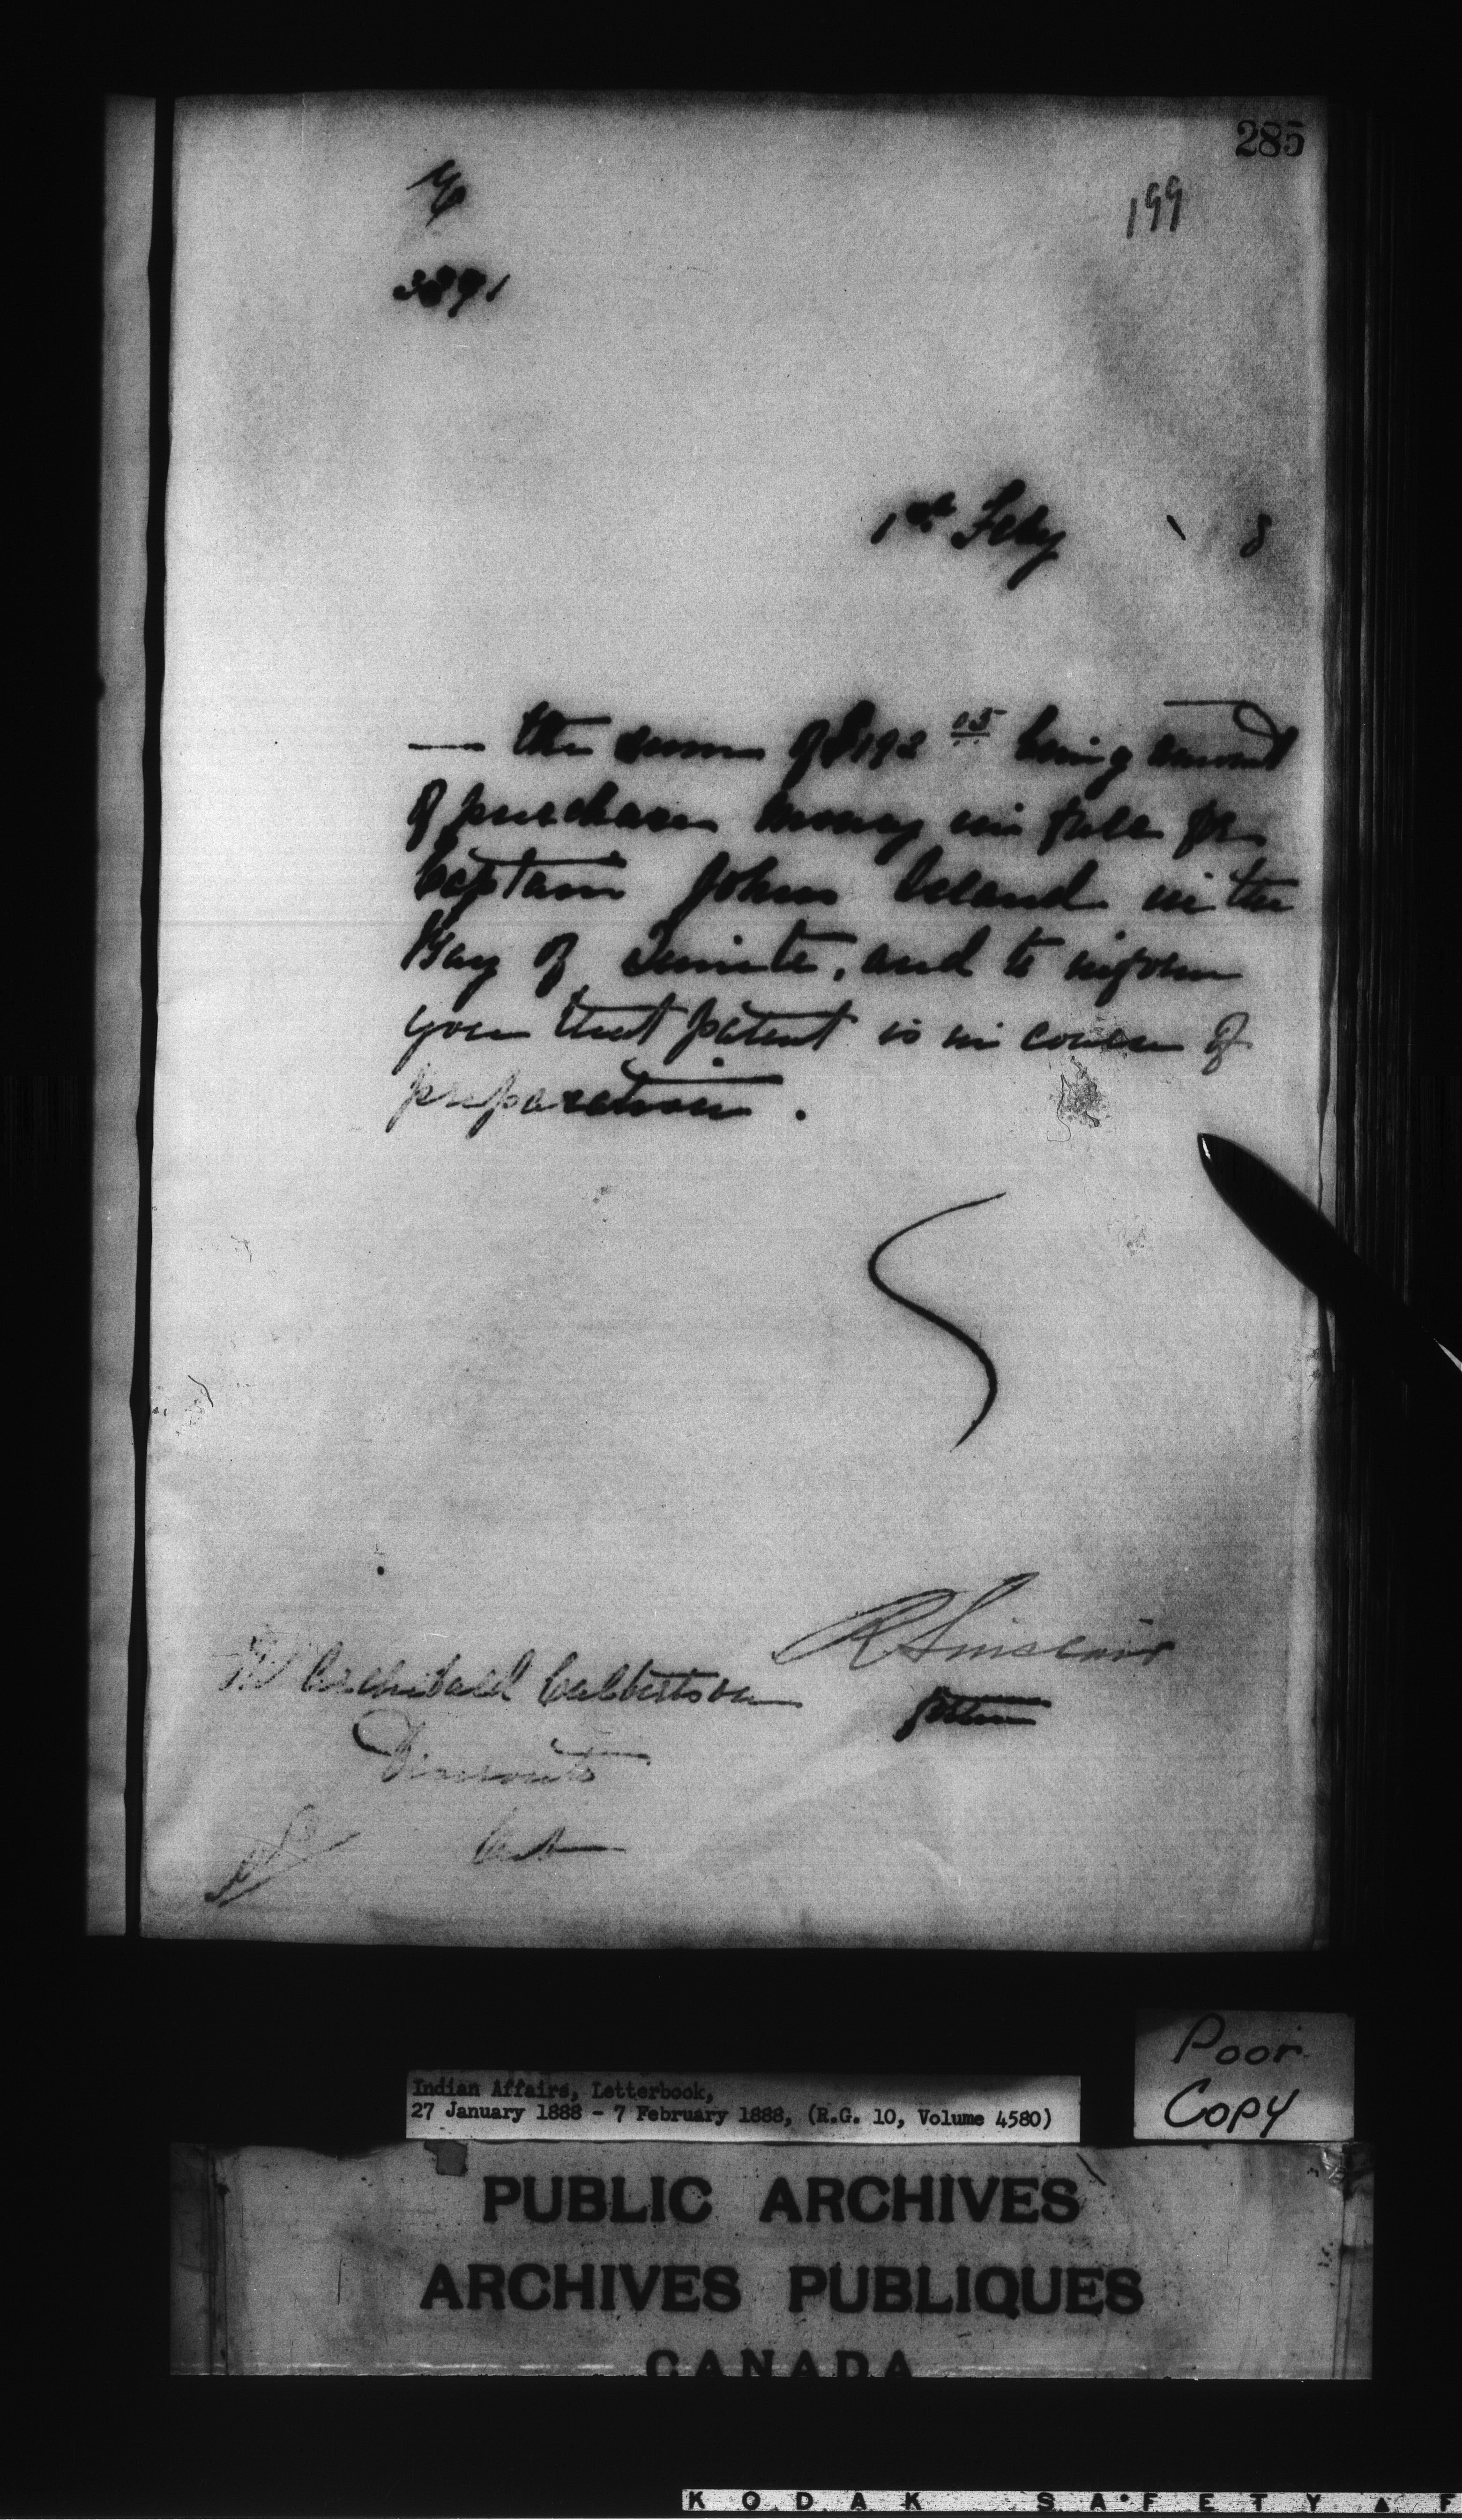 285
199
3891
1st Feby 8
— the sum of $192 05 being amount
of purchase money in full for
Captain Johns Island in the
Bay of Quinte, and to inform
you that patent is in course of
preparation.
R Sinclair
Archibald Culbertson
Deseronto
Ont
Poor
Copy
Indian Affairs, Letterbook,
27 January 1888 - 7 February 1888, (R.G. 10, Volume 4580)
PUBLIC ARCHIVES
ARCHIVES PUBLIQUES
CANADA
KODAK SAFETY ▲ F